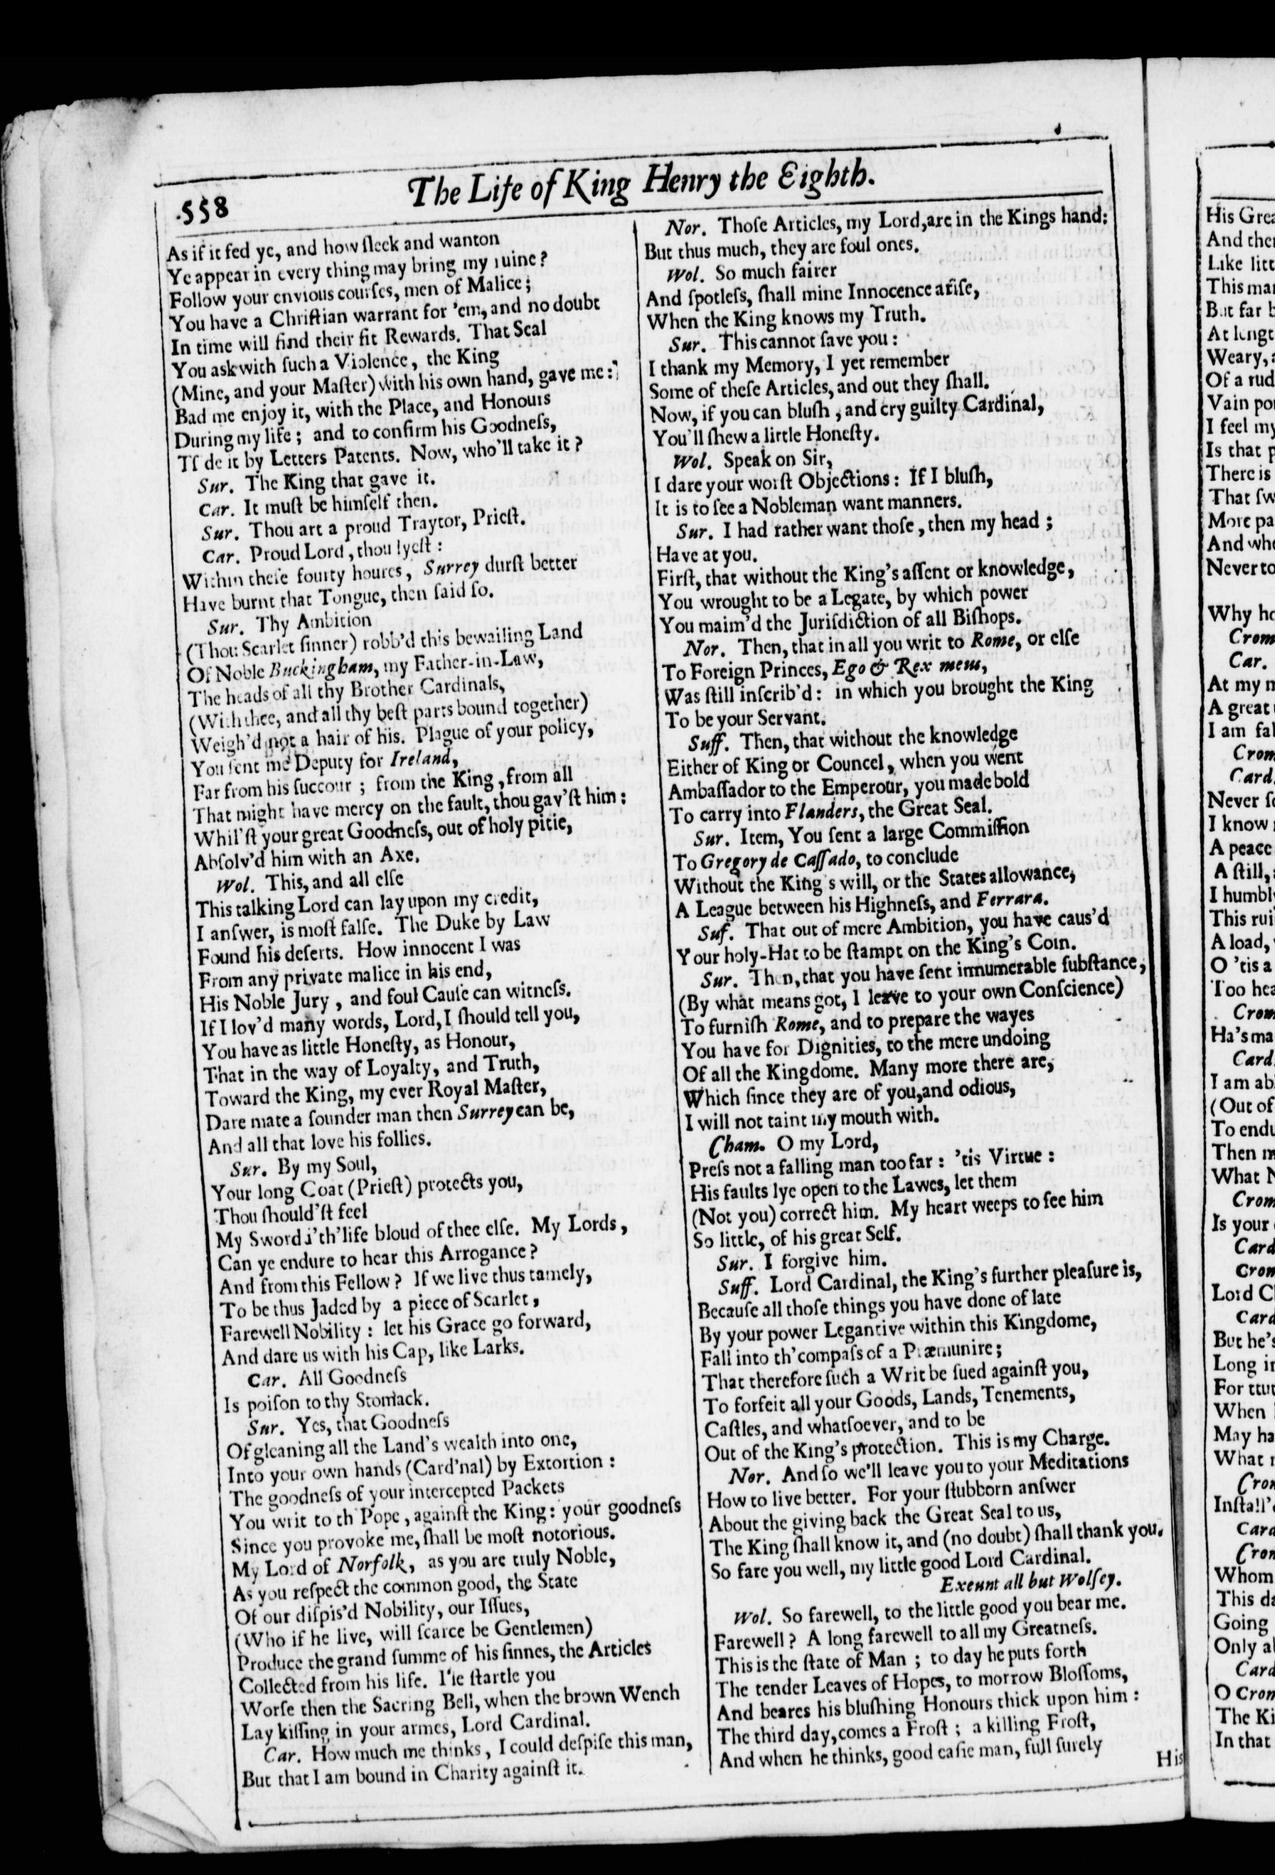 558
The Life of King Henry the Eighth.
As if it fed ye, and how ſleek and wanton
Ye appear in every thing may bring my ruine?
Follow your envious courſes, men of Malice;
You have a Chriſtian warrant for 'em, and no doubt
In time will find their fit Rewards. That Seal
You ask with ſuch a Violence, the King
(Mine, and your Maſter) with his own hand, gave me:
Bad me enjoy it, with the Place, and Honours
During my life; and to confirm his Goodneſs,
Ti'de it by Letters Patents. Now, who'll take it?
Sur. The King that gave it.
Car. It muſt be himſelf then.
Sur. Thou art a proud Traytor, Prieſt.
Car. Proud Lord, thou lyeſt:
Within theſe fourty houres, Surrey durſt better
Have burnt that Tongue, then ſaid ſo.
Sur. Thy Ambition
(Thou Scarlet ſinner) robb'd this bewailing Land
Of Noble Buckingham, my Father-in-Law,
The heads of all thy Brother Cardinals,
(With thee, and all thy beſt parts bound together)
Weigh'd not a hair of his. Plague of your policy,
You ſent me Deputy for Ireland,
Far from his ſuccour; from the King, from all
That might have mercy on the fault, thou gav'ſt him:
Whil'ſt your great Goodneſs, out of holy pitie,
Abſolv'd him with an Axe.
Wol. This, and all elſe
This talking Lord can lay upon my credit,
I anſwer, is moſt falſe. The Duke by Law
Found his deſerts. How innocent I was
From any private malice in his end,
His Noble Jury, and foul Cauſe can witneſs.
If I lov'd many words, Lord, I ſhould tell you,
You have as little Honeſty, as Honour,
That in the way of Loyalty, and Truth,
Toward the King, my ever Royal Maſter,
Dare mate a ſounder man then Surrey can be,
And all that love his follies.
Sur. By my Soul,
Your long Coat (Prieſt) protects you,
Thou ſhould'ſt feel
My Sword i'th'life bloud of thee elſe. My Lords,
Can ye endure to hear this Arrogance?
And from this Fellow? If we live thus tamely,
To be thus Jaded by a piece of Scarlet,
Farewell Nobility: let his Grace go forward,
And dare us with his Cap, like Larks.
Car. All Goodneſs
Is poiſon to thy Stomack.
Sur. Yes, that Goodneſs
Of gleaning all the Land's wealth into one,
Into your own hands (Card'nal) by Extortion:
The goodneſs of your intercepted Packets
You writ to th'Pope, againſt the King: your goodneſs
Since you provoke me, ſhall be moſt notorious.
My Lord of Norfolk, as you are truly Noble,
As you reſpect the common good, the State
Of our diſpis'd Nobility, our Iſſues,
(Who if he live, will ſcarce be Gentlemen)
Produce the grand ſumme of his ſinnes, the Articles
Collected from his life. I'le ſtartle you
Worſe then the Sacring Bell, when the brown Wench
Lay kiſſing in your armes, Lord Cardinal.
Car. How much me thinks, I could deſpiſe this man,
But that I am bound in Charity againſt it.
Nor. Thoſe Articles, my Lord, are in the Kings hand:
But thus much, they are foul ones.
Wol. So much fairer
And ſpotleſs, ſhall mine Innocence ariſe,
When the King knows my Truth.
Sur. This cannot ſave you:
I thank my Memory, I yet remember
Some of theſe Articles, and out they ſhall.
Now, if you can bluſh, and cry guilty Cardinal,
You'll ſhew a little Honeſty.
Wol. Speak on Sir,
I dare your worſt Objections: If I bluſh,
It is to ſee a Nobleman want manners.
Sur. I had rather want thoſe, then my head;
Have at you.
Firſt, that without the King's aſſent or knowledge,
You wrought to be a Legate, by which power
You maim'd the Juriſdiction of all Biſhops.
Nor. Then, that in all you writ to Rome, or elſe
To Foreign Princes, Ego & Rex meus,
Was ſtill inſcrib'd: in which you brought the King
To be your Servant.
Suff. Then, that without the knowledge
Either of King or Councel, when you went
Ambaſſador to the Emperour, you made bold
To carry into Flanders, the Great Seal.
Sur. Item, You ſent a large Commiſſion
To Gregory de Caſſado, to conclude
Without the King's will, or the States allowance,
A League between his Highneſs, and Ferrara.
Suf. That out of mere Ambition, you have caus'd
Your holy-Hat to be ſtampt on the King's Coin.
Sur. Then, that you have ſent innumerable ſubſtance,
(By what means got, I leave to your own Conſcience)
To furniſh Rome, and to prepare the wayes
You have for Dignities, to the mere undoing
Of all the Kingdome. Many more there are,
Which ſince they are of you, and odious,
I will not taint my mouth with.
Cham. O my Lord,
Preſs not a falling man too far: 'tis Virtue:
His faults lye open to the Lawes, let them
(Not you) correct him. My heart weeps to ſee him
So little, of his great Self.
Sur. I forgive him.
Suff. Lord Cardinal, the King's further pleaſure is,
Becauſe all thoſe things you have done of late
By your power Legantive within this Kingdome,
Fall into th'compaſs of a Præmunire;
That therefore ſuch a Writ be ſued againſt you,
To forfeit all your Goods, Lands, Tenements,
Caſtles, and whatſoever, and to be
Out of the King's protection. This is my Charge.
Nor. And ſo we'll leave you to your Meditations
How to live better. For your ſtubborn anſwer
About the giving back the Great Seal to us,
The King ſhall know it, and (no doubt) ſhall thank you.
So fare you well, my little good Lord Cardinal.
Exeunt all but Wolſey.
Wol. So farewell, to the little good you bear me.
Farewell? A long farewell to all my Greatneſs.
This is the ſtate of Man; to day he puts forth
The tender Leaves of Hopes, to morrow Bloſſoms,
And beares his bluſhing Honours thick upon him:
The third day, comes a Froſt; a killing Froſt,
And when he thinks, good eaſie man, full ſurely
His
His Grea
And then
Like litt
This man
But far b
At lengt
Weary, a
Of a rud
Vain po
I feel my
Is that p
There is
That ſw
More pa
And whe
Never to
Why ho
Crom
Car.
At my m
A great
I am fal
Crom
Card
Never ſo
I know
A peace
A ſtill,
I humbl
This rui
A load,
O 'tis a
Too hea
Crom
Ha's ma
Card
I am ab
(Out of
To endu
Then m
What N
Crom
Is your
Card
Crom
Lord C
Card
But he's
Long in
For trut
When
May ha
What
Crom
Inſtall'd
Card
Crom
Whom
This da
Going
Only a
Card
O Crom
The Ki
In that